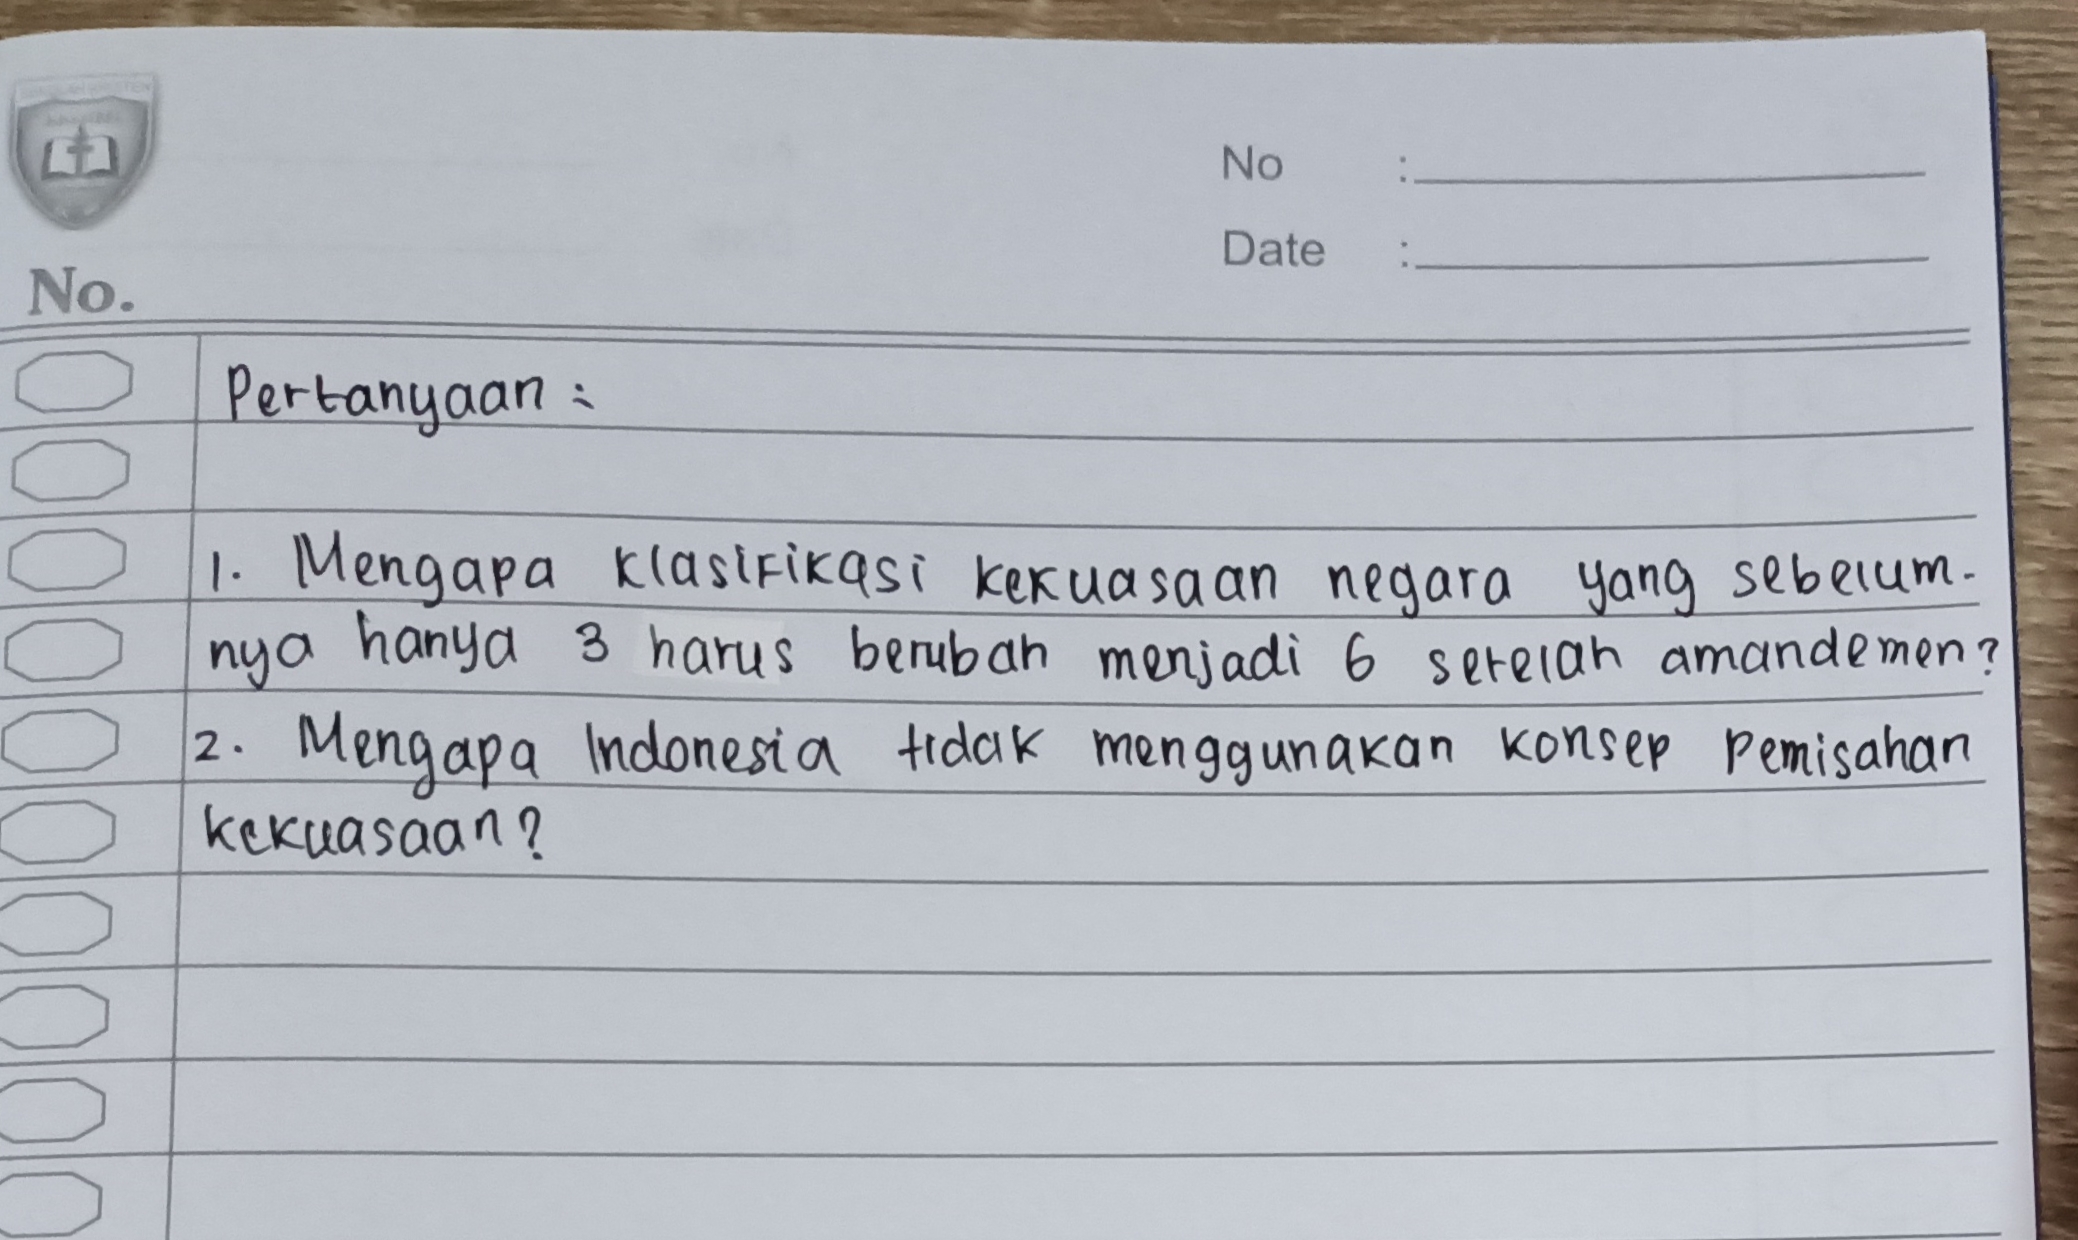 No :
Date :
No.
Pertanyaan :
1. Mengapa klasifikasi kekuasaan negara yang sebelum-
nya hanya 3 harus berubah menjadi 6 setelah amandemen?
2. Mengapa Indonesia tidak menggunakan konsep pemisahan
kekuasaan?